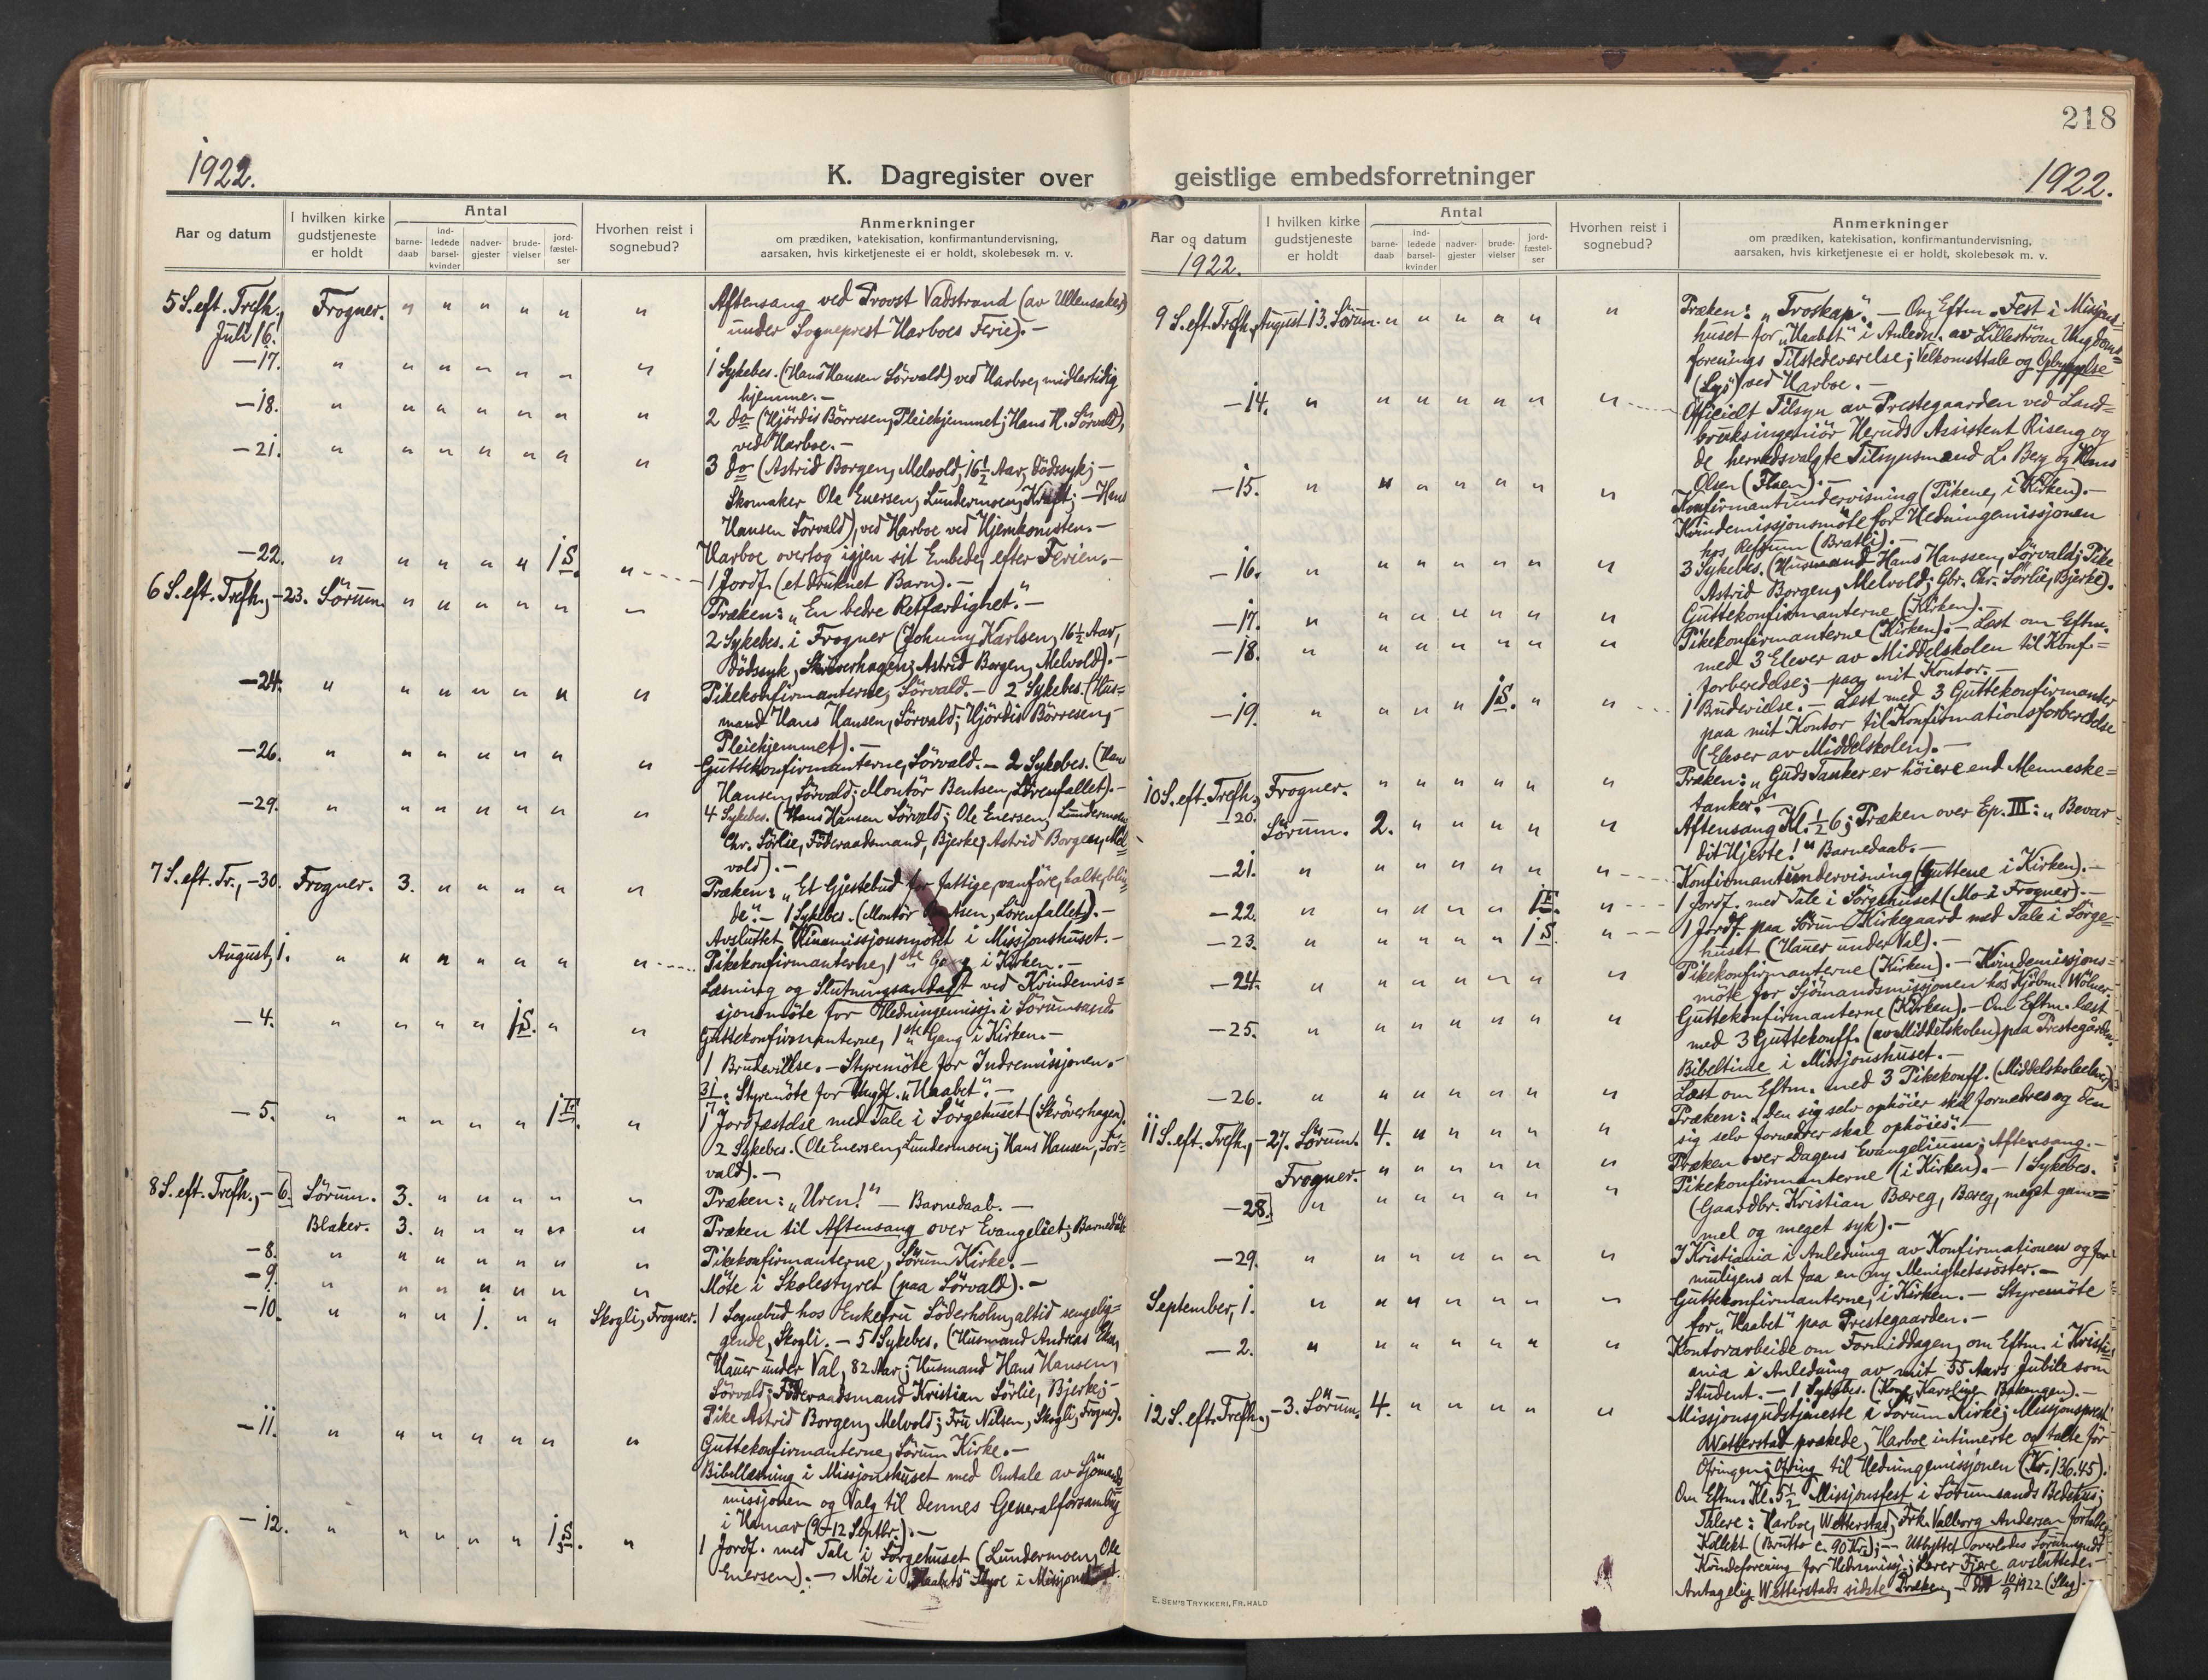 218
1922.
K. Dagregister over geistlige embedsforretninger
1922.
Aar og datum
I hvilken kirke gudstjeneste er holdt
Antal
barne-daab
ind-ledede barsel-kvinder
nadver-gjester
brude-vielser
jord-fæstel-ser
Hvorhen reist i sognebud?
Anmerkninger
om prædiken, katekisation, konfirmantundervisning,
aarsaken, hvis kirketjeneste ei er holdt, skolebesøk m. v.
5 S. eft. Trefh., Frogner. " " " " " " Aftensang ved Provst Vadstrand (av Ullensaker)
Juli 16. under Sogneprest Harboes Ferie). -
-17. " " " " " " " 1 Sykebes. (Hans Hansen Sörvald) ved Harboe, midlertidig
hjemme. -
-18. " " " " " " " 2 do (Hjördis Börresen, Pleiehjemmet; Hans H. Sörvald),
ved Harboe. -
-21. " " " " " " " 3 do (Astrid Borgen, Melvold, 16½ Aar, dödssyk; -
Skomaker Ole Enersen, Lundermoen, Kræft; - Hans
Hansen Sörvald), ved Harboe ved Hjemkomsten. -
-22. " " " " " 1 S. " Harboe overtog igjen sit Embede, efter Ferien. -
1 Jordf. (et druknet Barn). -
6 S. eft. Trefh., -23. Sörum. " " " " " " Præken: "En bedre Retfærdighet." -
2 Sykebes. i Frogner (Johnny Karlsen, 16½ Aar,
dödssyk, Skröverhagen; Astrid Borgen, Melvold). -
-24. " " " " " " " Pikekonfirmanterne, Sörvald. - 2 Sykebes. (Hus=
mand Hans Hansen, Sörvald; Hjördis Börresen,
Pleiehjemmet). -
-26. " " " " " " " Guttekonfirmanterne, Sörvald. - 2 Sykebes. (Hans
Hansen, Sörvald; Montör Bentsen, Lörenfallet). -
-29. " " " " " " " 4 Sykebes. (Hans Hansen Sörvald; Ole Enersen, Lundermoen
Chr. Sörlie, Föderaadsmand, Bjerke; Astrid Borgen, Mel
vold). -
7 S. eft. Tr., -30. Frogner. 3. " " " " " Præken: "Et Gjestebud for fattige, vanföre, halte, blin
de." - 1 Sykebes. (Montör Bentsen, Lörenfallet). -
Avsluttet Kinamissjonsmötet i Missjonshuset. -
August, 1. " " " " " " " Pikekonfirmanterne, 1ste Gang i Kirken. -
Læsning og Slutningsandagt ved Kvindemis=
sjonsmöte for Hedningemissj. i Sörumsand.
-4. " " " " 1 S. " " Guttekonfirmanterne, 1ste Gang i Kirken. -
1 Brudevielse. - Styremöte for Indremissjonen. -
31/7. Styremöte for Ungdf. "Haabet". -
-5. " " " " " 1 F. " 1 Jordfæstelse med Tale i Sörgehuset (Skröverhagen).
2 Sykebes. (Ole Enersen, Lundermoen; Hans Hansen, Sör=
vald). -
8 S. eft. Trefh., -6. Sörum. 3. " " " " " Præken: "Uren!" - Barnedaab. -
Blaker. 3. " " " " " Præken til Aftensang over Evangeliet; Barnedåb
-8. " " " " " " " Pikekonfirmanterne, Sörum Kirke. -
-9. " " " " " " " Möte i Skolestyret (paa Sörvald). -
-10. " " " 1. " " Skogli, Frogner. 1 Sognebud hos Enkefru Söderholm, altid sengelig=
gende, Skogli. - 5 Sykebes. (Husmand Andreas
Hauer under Val, 82 Aar; Husmand Hans Hansen,
Sörvald; Föderaadsmand Kristian Sörlie, Bjerke; -
Pike Astrid Borgen, Melvold; Fru Nilsen, Skogli, Frogner).
-11. " " " " " " " Guttekonfirmanterne, Sörum Kirke. -
Bibellæsning i Missjonshuset med Omtale av Sjömands
missjonen og Valg til dennes Generalforsamling
i Hamar (9-12 Septbr.). -
-12. " " " " " 1 S. " 1 Jordf. med Tale i Sörgehuset (Lundermoen, Ole
Enersen). - Möte i "Haabets" Styre i Missjonshuset.
Aar og datum
1922.
I hvilken kirke gudstjeneste er holdt
Antal
barne-daab
ind-ledede barsel-kvinder
nadver-gjester
brude-vielser
jord-fæstel-ser
Hvorhen reist i sognebud?
Anmerkninger
om prædiken, katekisation, konfirmantundervisning,
aarsaken, hvis kirketjeneste ei er holdt, skolebesøk m. v.
9 S. eft. Trefh., August 13. Sörum. " " " " " " Præken: "Troskap". - Om Eftm. Fest i Missjons=
huset for "Haabet" i Anledn. av Lilleström Ungdoms=
forenings Tilstedeværelse; Velkomsttale og Opbyggelse
("Lys") ved Harboe. -
-14. " " " " " " " Officielt Tilsyn av Prestegaarden ved Land=
bruksingeniör Heruds Assistent Riseng og
de herredsvalgte Tilsynsmænd L. Berg og Hans
Olsen (Flaen). -
-15. " " " " " " " Konfirmantundervisning (Pikene, i Kirken). -
Kvindemissjonsmöte for Hedningemissjonen
hos Refsum (Bratli). -
-16. " " " " " " " 3 Sykebes. (Husmand Hans Hanssen, Sörvald; Pike
Astrid Borgen, Melvold; Gbr. Chr. Sörlie, Bjerke).
-17. " " " " " " " Guttekonfirmanterne (Kirken). -
-18. " " " " " " " Pikekonfirmanterne (Kirken). - Læst om Eftm.
med 3 Elever av Middelskolen til Konf=
forberedelse; - paa mit Kontor. -
-19. " " " " 1 S. " " 1 Brudevielse. - Læst med 3 Guttekonfirmanter
paa mit Kontor til Konfirmationsforberedelse
(Elever av Middelskolen). -
10 S. eft. Trefh., Frogner. " " " " " " Præken: "Guds Tanker er höiere end Menneske=
tanker." -
-20. Sörum. 2. " " " " " Aftensang Kl. ½6; Præken over Ep. III: "Bevar
dit Hjerte!" Barnedaab. -
-21. " " " " " " " Konfirmantundervisning (Guttene i Kirken). -
-22. " " " " " 1 F. " 1 Jordf. med Tale i Sörgehuset (Mo i Frogner). -
-23. " " " " " 1 S. " 1 Jordf. paa Sörum Kirkegaard med Tale i Sörge=
huset (Hauer under Val). -
-24. " " " " " " " Pikekonfirmanterne (Kirken). - Kvindemissjons=
möte for Sjömandsmissjonen hos Kjöbm. Wölner
-25. " " " " " " " Guttekonfirmanterne (Kirken). - Om Eftm. læst
med 3 Guttekonff. (av Middelskolen) paa Prestegården.
Bibeltime i Missjonshuset. -
-26. " " " " " " " Læst om Eftm. med 3 Pikekonff. (Middelskoleelever)
11 S. eft. Trefh., -27. Sörum. 4. " " " " " Præken: "Den sig selv ophöier skal fornedres og den
sig selv fornedrer skal ophöies." -
Frogner. " " " " " " Præken over Dagens Evangelium; Aftensang. -
-28. " " " " " " " Pikekonfirmanterne (i Kirken). - 1 Sykebes.
(Gaardbr. Kristian Bæreg, Bæreg, meget gam=
mel og meget syk). -
-29. " " " " " " " I Kristiania i Anledning av Konfirmationen og for
muligens at faa en ny Menighetssöster. -
September, 1. " " " " " " " Guttekonfirmanterne, i Kirken. - Styremöte
for "Haabet" paa Prestegaarden. -
-2. " " " " " " " Kontorarbeide om Formiddagen, om Eftm. i Kristi=
ania i Anledning av mit 55 Aars Jubilæ som
Student. - 1 Sykebes. (Kone Karoline Bakengen). -
12 S. eft. Trefh., -3. Sörum. 4. " " " " " Missjonsgudstjeneste i Sörum Kirke; Missjonsprest
Wetterstad prækede, Harboe intimerte og talte för
Ofringen; Ofring til Hedningemissjonen (Kr. 136.45).
Om Eftm. Kl. 5½ Missjonsfest i Sörumsands Bedehus;
Talere: Harboe, Wetterstad, Frk. Valborg Andersen fortalte,
Kollekt (Brutto c. 90 Kr.); - Utbyttet overlodes Sörumsands
Kvindeforening for Hednmissj.; Lærer Fjære avsluttede. -
Antagelig Wetterstads sidste Præken, - 10/9 1922 (Slag). -
E. SEM'S TRYKKERI, FR.HALD